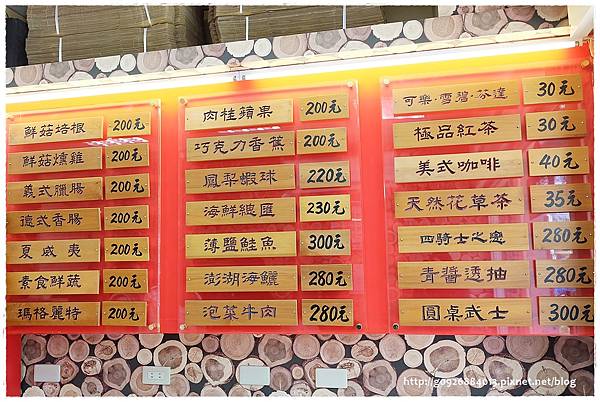 鮮菇培根 200元
鮮菇燻雞 200元
義式臘腸 200元
德式香腸 200元
夏威夷 200元
素食鮮蔬 200元
瑪格麗特 200元
肉桂蘋果 200元
巧克力香蕉 200元
鳳梨蝦球 220元
海鮮總匯 230元
薄鹽鮭魚 300元
澎湖海鱺 280元
泡菜牛肉 280元
可樂·雪碧·芬達 30元
極品紅茶 30元
美式咖啡 40元
天然花草茶 35元
四騎士之戀 280元
青醬透抽 280元
圓桌武士 300元
http://g0926884013.pixnet.net/blog